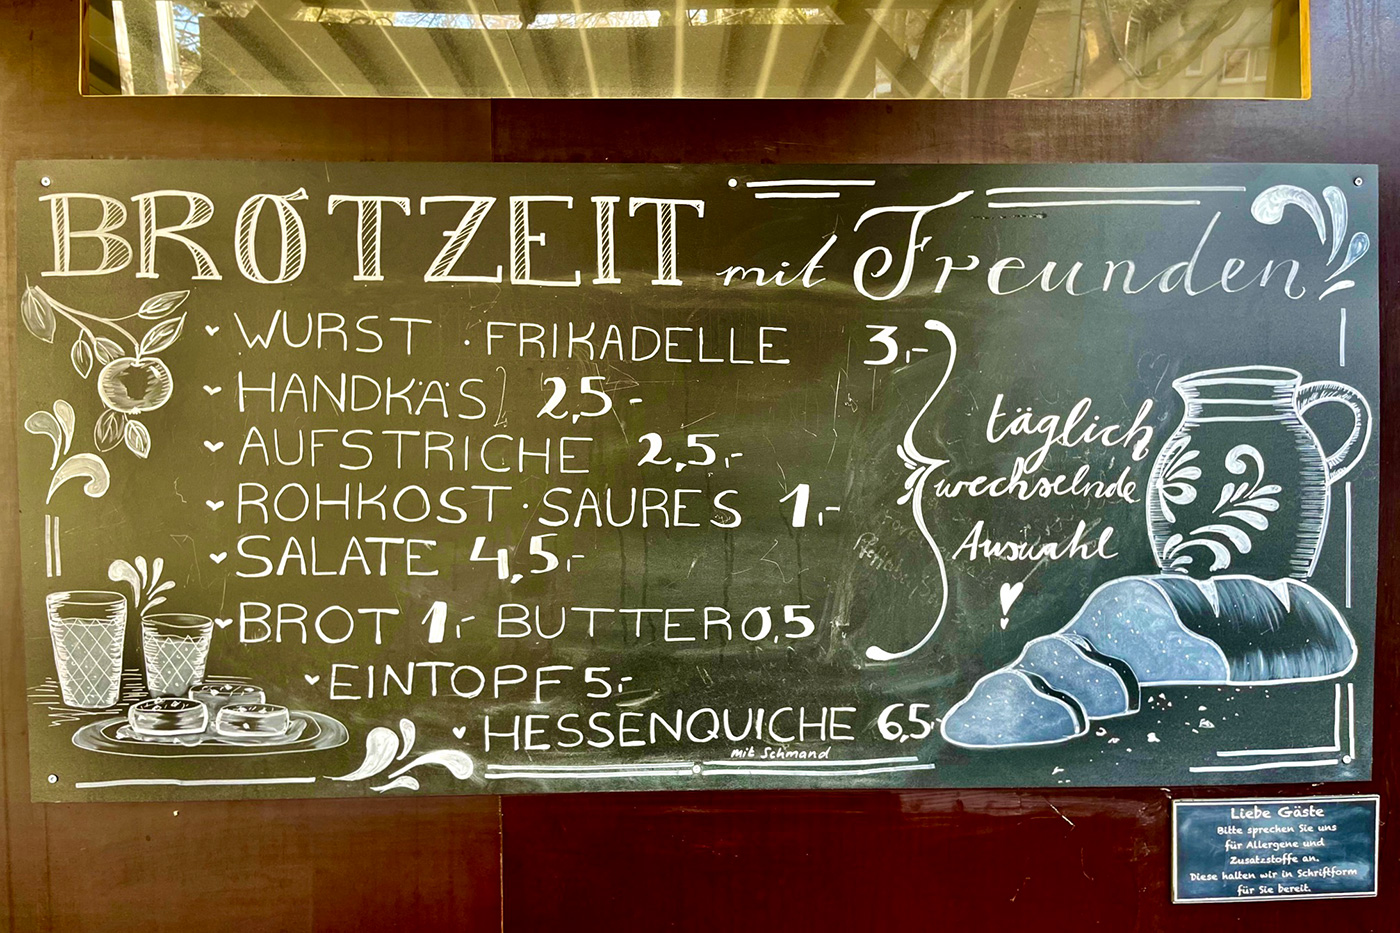 BROTZEIT mit Freunden
WURST · FRIKADELLE 3,-
HANDKÄS 2,5-
AUFSTRICHE 2,5,-
ROHKOST · SAURES 1,-
SALATE 4,5,-
BROT 1,- BUTTER 0,5
EINTOPF 5,-
HESSENQUICHE 6,5,
mit Schmand
täglich
wechselnde
Auswahl
Liebe Gäste
Bitte sprechen Sie uns
für Allergene und
Zusatzstoffe an.
Diese halten wir in Schriftform
für Sie bereit.